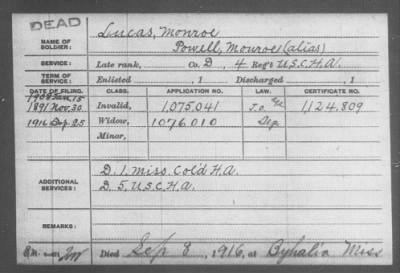 DEAD
NAME OF SOLDIER: Lucas, Monroe
Powell, Monroe (alias)
SERVICE: Late rank, Co. D, 4 Reg't U.S.C.H.A.
TERM OF SERVICE: Enlisted , 1 Discharged , 1
DATE OF FILING. CLASS. APPLICATION NO. LAW. CERTIFICATE NO.
1908 Jan 15
1891 Nov. 30 Invalid, 1,075,041 1,124,809
1916 Sep 25 Widow, 1076,010
Minor,
ADDITIONAL SERVICES: D. 1. Miss. Cold H.A.
D. 5, U.S.C.H.A.
REMARKS:
Died Sep 8, 1916, at Byhalia Miss